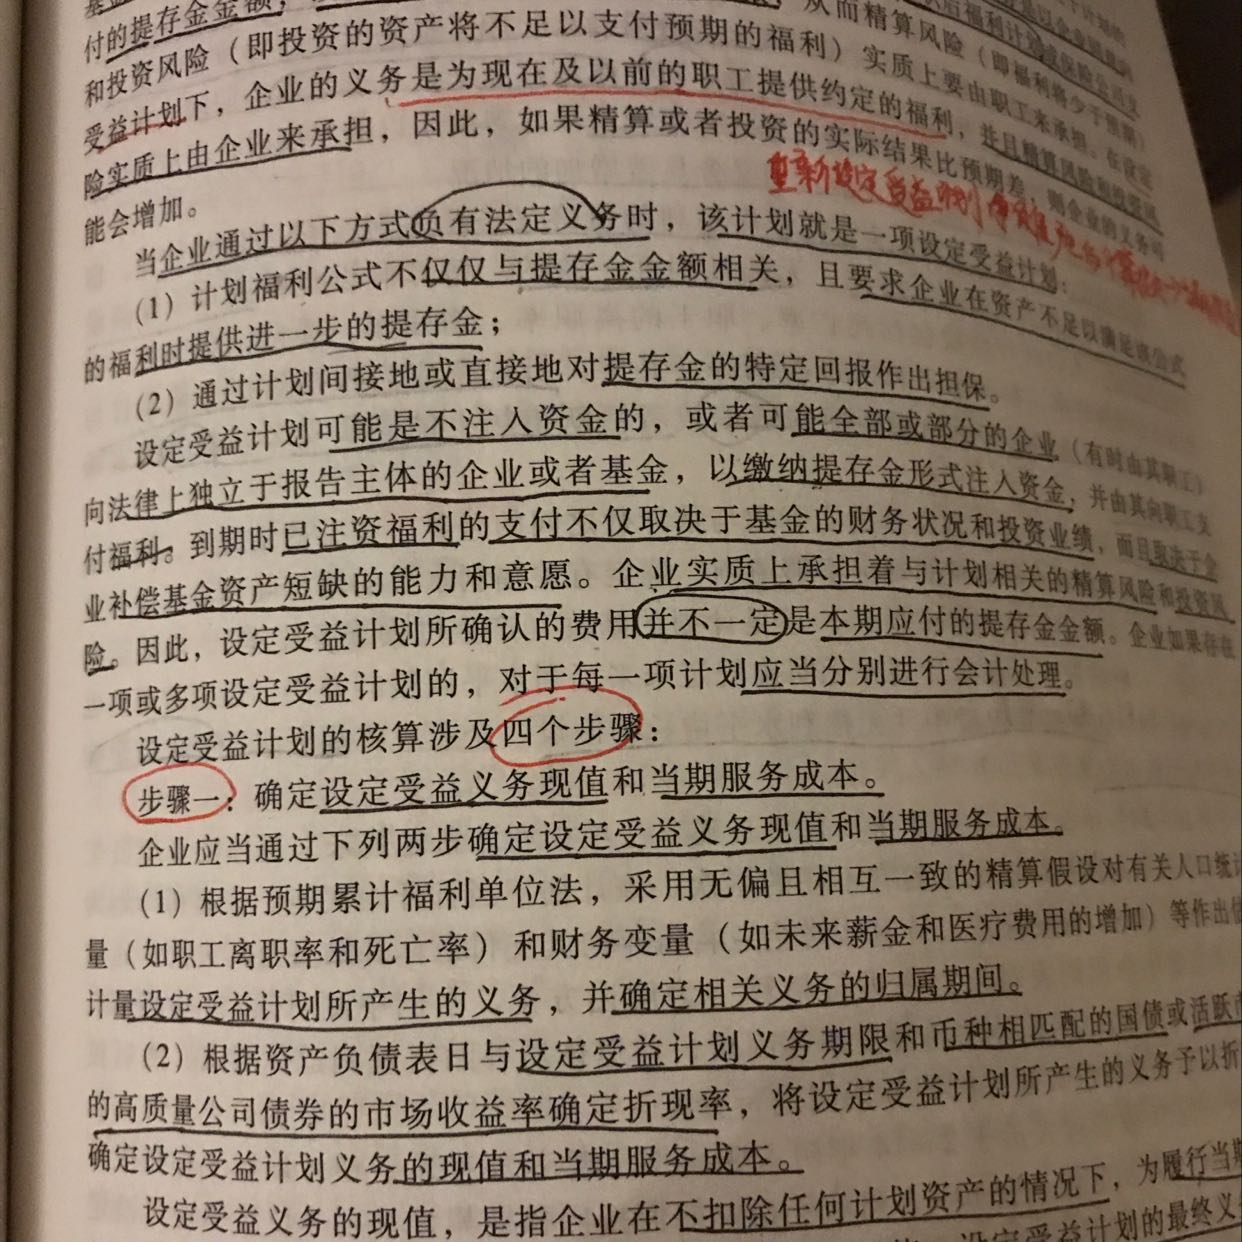 付的提存金金额，
后福利计划
和投资风险（即投资的资产将不足以支付预期的福利）实质上要由职工来承担。在设定
从而精算风险（即福利将少于预期）
受益计划下，企业的义务是为现在及以前的职工提供约定的福利，并且精算风险和投资风
险实质上由企业来承担，因此，如果精算或者投资的实际结果比预期差，则企业的义务可
能会增加。
重新设定受益计划净负债
当企业通过以下方式负有法定义务时，该计划就是一项设定受益计划：
（1）计划福利公式不仅仅与提存金金额相关，且要求企业在资产不足以满足该公式
的福利时提供进一步的提存金；
（2）通过计划间接地或直接地对提存金的特定回报作出担保。
设定受益计划可能是不注入资金的，或者可能全部或部分的企业（有时由其职工）
向法律上独立于报告主体的企业或者基金，以缴纳提存金形式注入资金，并由其向职工支
付福利。到期时已注资福利的支付不仅取决于基金的财务状况和投资业绩，而且取决于企
业补偿基金资产短缺的能力和意愿。企业实质上承担着与计划相关的精算风险和投资风
险。因此，设定受益计划所确认的费用并不一定是本期应付的提存金金额。企业如果存在
一项或多项设定受益计划的，对于每一项计划应当分别进行会计处理。
设定受益计划的核算涉及四个步骤：
步骤一：确定设定受益义务现值和当期服务成本。
企业应当通过下列两步确定设定受益义务现值和当期服务成本。
（1）根据预期累计福利单位法，采用无偏且相互一致的精算假设对有关人口统计
量（如职工离职率和死亡率）和财务变量（如未来薪金和医疗费用的增加）等作出
计量设定受益计划所产生的义务，并确定相关义务的归属期间。
（2）根据资产负债表日与设定受益计划义务期限和币种相匹配的国债或活跃
的高质量公司债券的市场收益率确定折现率，将设定受益计划所产生的义务予以折
确定设定受益计划义务的现值和当期服务成本。
设定受益义务的现值，是指企业在不扣除任何计划资产的情况下，为履行当期
设定受益计划的最终义